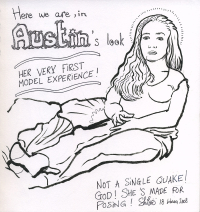 Here we are, in
Austin's look
HER VERY FIRST
MODEL EXPERIENCE!
NOT A SINGLE QUAKE!
GOD! SHE'S MADE FOR
POSING! 18